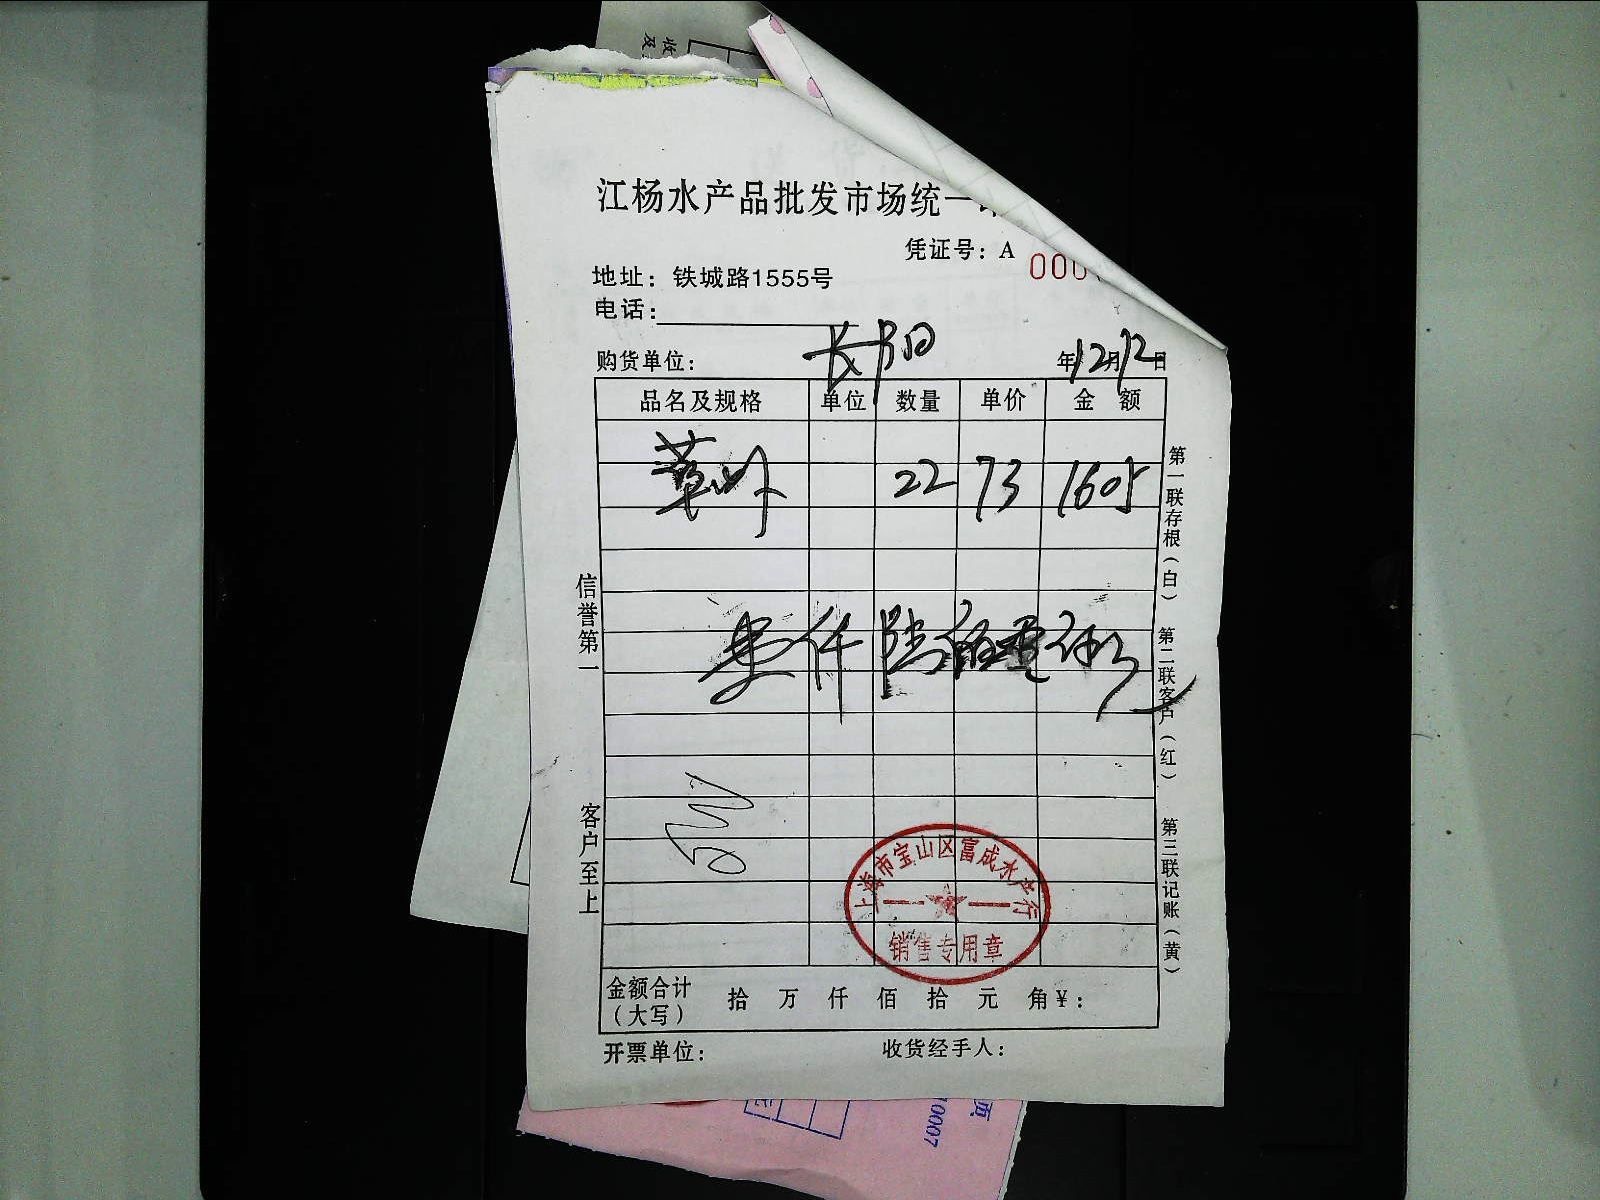 江杨水产品批发市场统一
凭证号：A 000
地址：铁城路1555号
电话：
购货单位：长阳 年12月12日
品名及规格 单位 数量 单价 金额
22 73 1605
壹仟陆佰零伍元
信誉第一
客户至上
第一联存根（白） 第二联客户（红） 第三联记账（黄）
上海市宝山区富成水产行
销售专用章
金额合计（大写） 拾 万 仟 佰 拾 元 角￥：
开票单位： 收货经手人：
10007